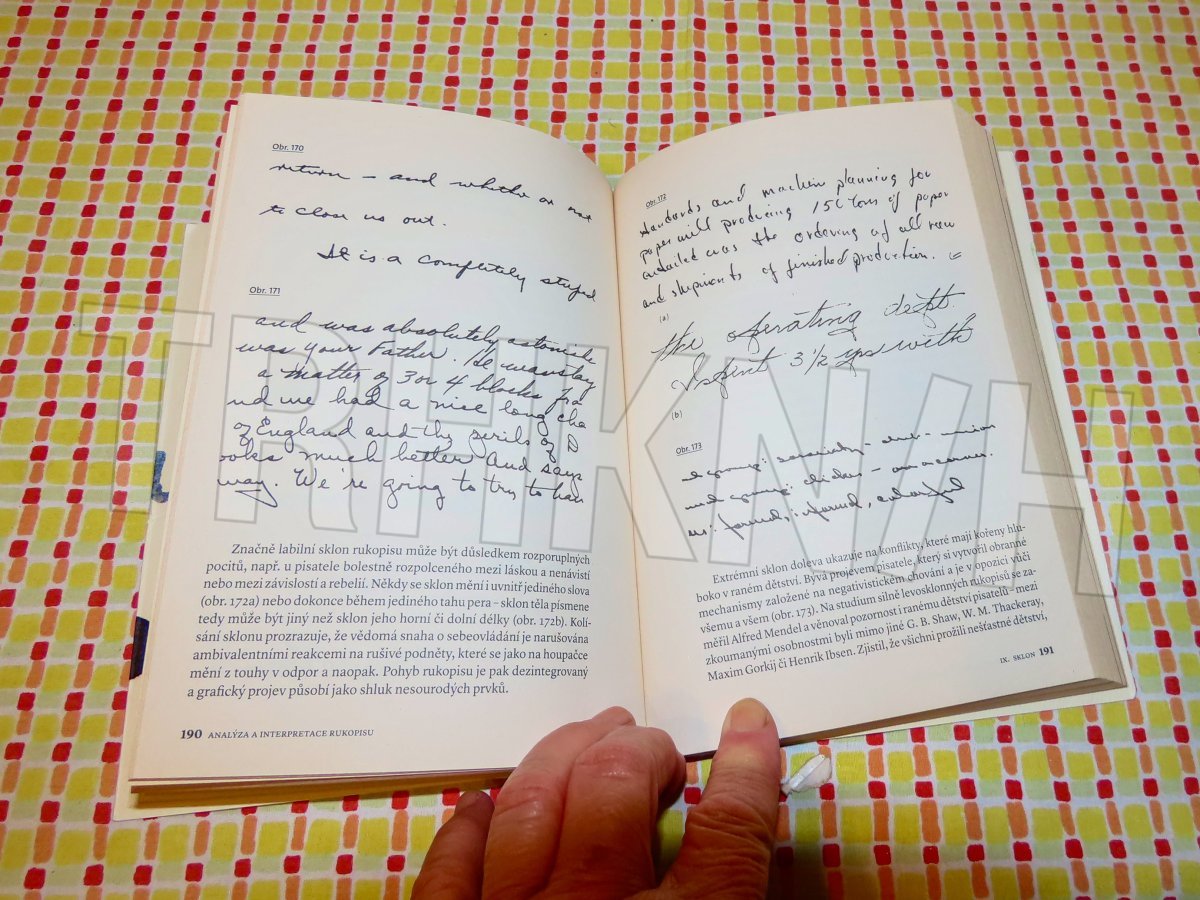 Obr. 170
return – and whether or not
to close us out.
It is a completely stupid
Obr. 171
and was absolutely astonishe
was your Father. He was stay
a matter of 3 or 4 blocks fro
nd we had a nice long cha
of England and the perils of D
ooks much better and says
way. We're going to try to hav
Značně labilní sklon rukopisu může být důsledkem rozporuplných
pocitů, např. u pisatele bolestně rozpolceného mezi láskou a nenávistí
nebo mezi závislostí a rebelií. Někdy se sklon mění i uvnitř jediného slova
(obr. 172a) nebo dokonce během jediného tahu pera – sklon těla písmene
tedy může být jiný než sklon jeho horní či dolní délky (obr. 172b). Kolí-
sání sklonu prozrazuje, že vědomá snaha o sebeovládání je narušována
ambivalentními reakcemi na rušivé podněty, které se jako na houpačce
mění z touhy v odpor a naopak. Pohyb rukopisu je pak dezintegrovaný
a grafický projev působí jako shluk nesourodých prvků.
190 ANALÝZA A INTERPRETACE RUKOPISU
Obr. 172
standards and machine planning for
paper mill producing 150 tons of paper
entailed was the ordering of all raw
and shipments of finished production.
(a)
the operating dept.
I spent 3 1/2 yrs with
(b)
Obr. 173
Extrémní sklon doleva ukazuje na konflikty, které mají kořeny hlu-
boko v raném dětství. Bývá projevem pisatele, který si vytvořil obranné
mechanismy založené na negativistickém chování a je v opozici vůči
všemu a všem (obr. 173). Na studium silně levosklonných rukopisů se za-
měřil Alfred Mendel a věnoval pozornost i ranému dětství pisatelů – mezi
zkoumanými osobnostmi byli mimo jiné G. B. Shaw, W. M. Thackeray,
Maxim Gorkij či Henrik Ibsen. Zjistil, že všichni prožili nešťastné dětství,
IX. SKLON 191
TRHKNIH